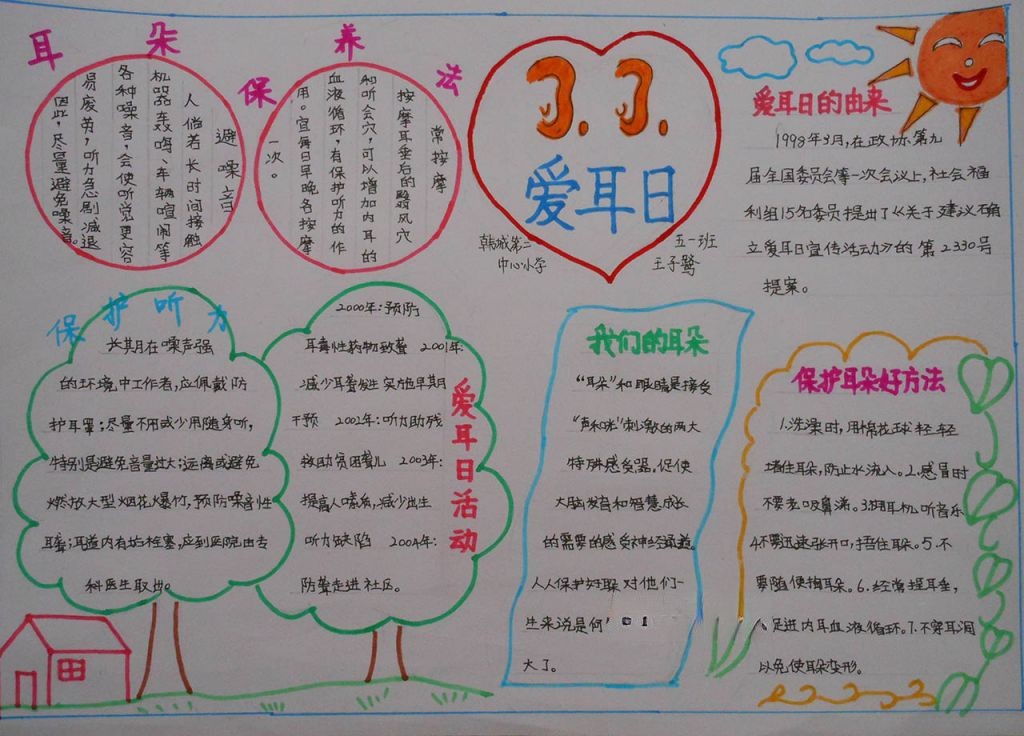 耳朵保养法
避噪音
人倘若长时间接触
机器轰鸣、车辆喧闹等
各种噪音，会使听觉更容
易疲劳，听力急剧减退
因此，尽量避免噪音。
常按摩
按摩耳垂后的翳风穴
和听会穴，可以增加内耳的
血液循环，有保护听力的作
用。宜每日早晚各按摩
一次。
3.3.
爱耳日
韩城第二
中心小学
五一班
王子鹭
爱耳日的由来
1998年3月，在政协第九
届全国委员会第一次会议上，社会福
利组15名委员提出了《关于建议确
立爱耳日宣传活动》的第2330号
提案。
保护听力
长期在噪声强
的环境中工作者，应佩戴防
护耳罩；尽量不用或少用随身听，
特别是避免音量过大；远离或避免
燃放大型烟花爆竹，预防噪音性
耳聋；耳道内有
栓塞，应到医院由专
科医生取出。
爱耳日活动
2000年：预防
耳毒性药物致聋 2001年：
减少耳聋发生 实施早期
干预 2002年：听力助残
救助贫困聋儿 2003年：
提高人口素质，减少出生
听力缺陷 2004年：
防聋走进社区。
我们的耳朵
“耳朵”和眼睛是接受
“声和光”刺激的两大
特殊感受器，促使
大脑发育和智慧成长
的需要的感受神经通道。
人人保护好耳朵对他们一
生来说是何
大了。
保护耳朵好方法
1.洗澡时，用棉花球轻轻
堵住耳朵，防止水流入。2.感冒时
不要老吸鼻涕。3.
耳机听音乐
4不要迅速张开口，捂住耳朵。5.不
要随便掏耳朵。6.经常捏耳垂，
促进内耳血液循环。7.不穿耳洞
以免使耳朵变形。